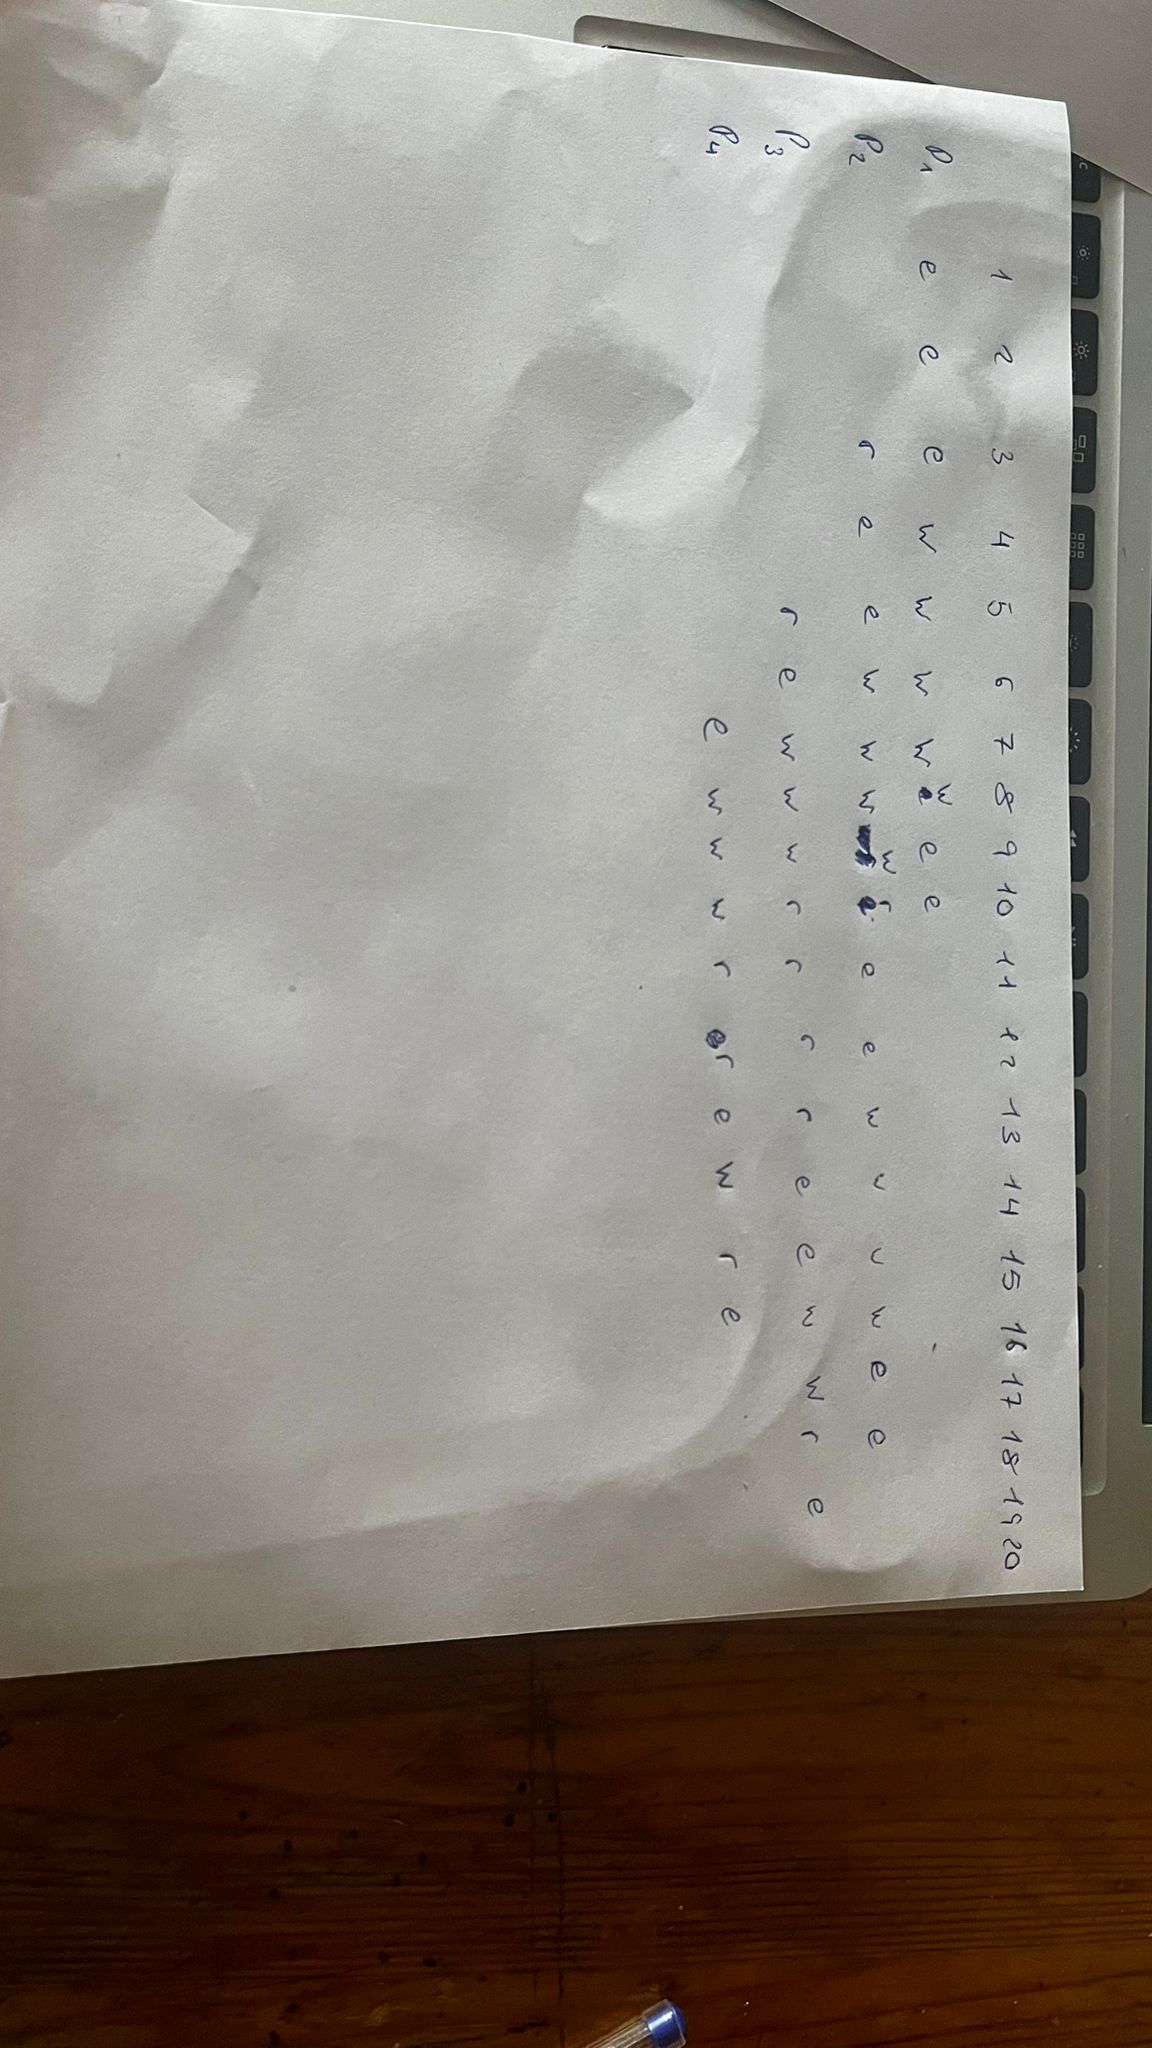 1 2 3 4 5 6 7 8 9 10 11 12 13 14 15 16 17 18 19 20
P1 e e e w w w w w e e
P2 r e e w w w w r e e w w v w e e
P3 r e w w w r r r r e e w w r e
P4 e w w w r r e w r e